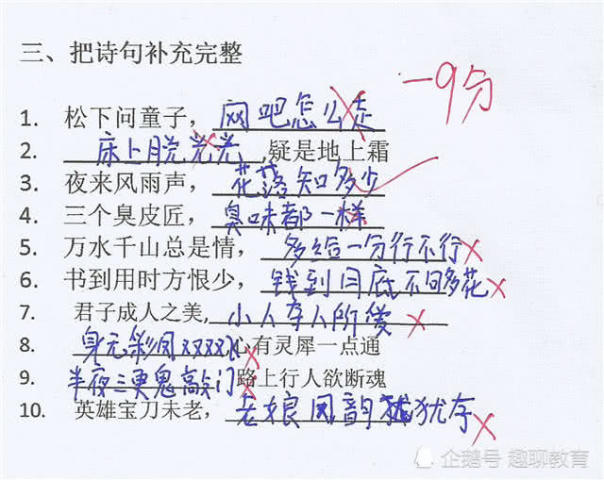 三、把诗句补充完整
-9分
1. 松下问童子，网吧怎么走
2. 床上脱光光，疑是地上霜
3. 夜来风雨声，花落知多少
4. 三个臭皮匠，臭味都一样
5. 万水千山总是情，多给一分行不行
6. 书到用时方恨少，钱到月底不够花
7. 君子成人之美，小人夺人所爱
8. 身无彩凤双双飞心有灵犀一点通
9. 半夜三更鬼敲门路上行人欲断魂
10. 英雄宝刀未老，老娘风韵犹存
企鹅号 趣聊教育